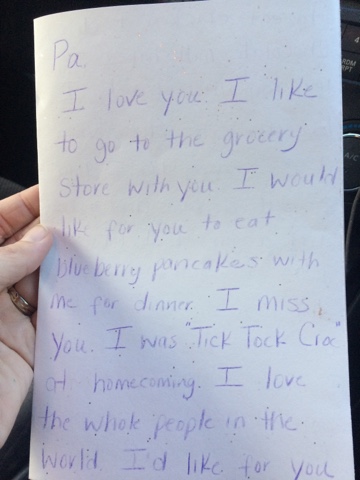 Pa.
I love you. I like
to go to the grocery
store with you. I would
like for you to eat
blueberry pancakes with
me for dinner. I miss
you. I was "Tick Tock Croc"
at homecoming. I love
the whole people in the
world. I'd like for you